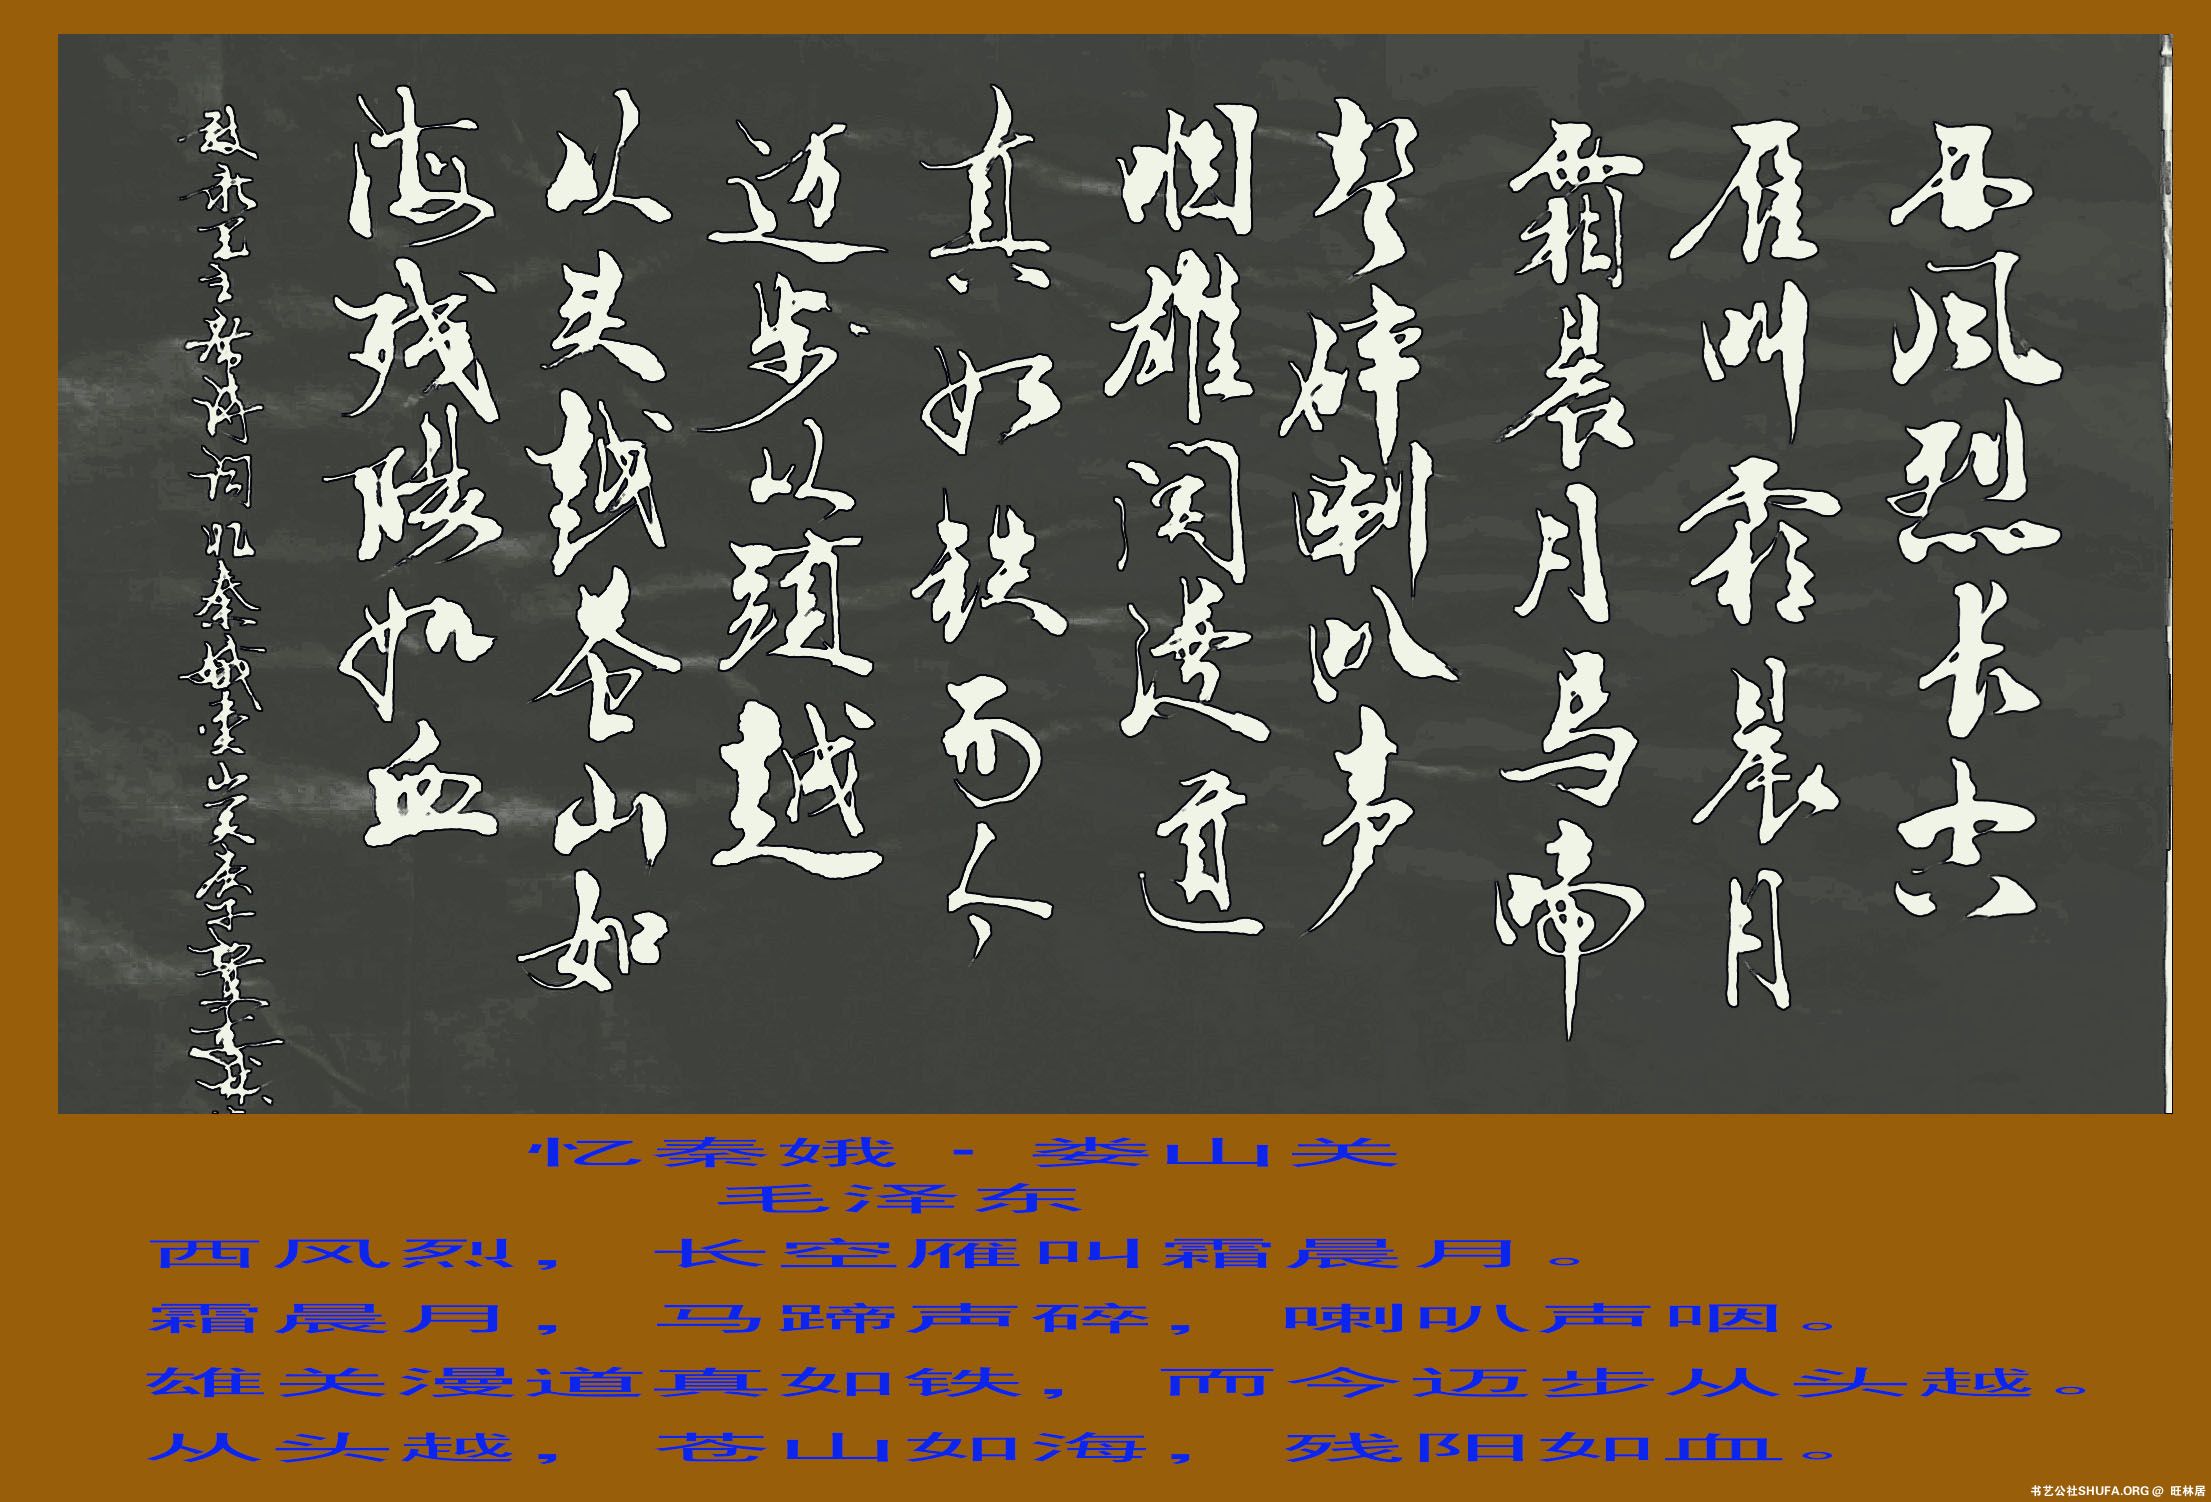 西风烈长空
雁叫霜晨月
霜晨月马啼
声碎喇叭声
咽雄关漫道
真如铁而今
迈步从头越
从头越苍山如
海残阳如血
敬录毛主席诗词忆秦娥娄山关庚子
忆秦娥 - 娄山关
毛泽东
西风烈， 长空雁叫霜晨月。
霜晨月， 马蹄声碎， 喇叭声咽。
雄关漫道真如铁， 而今迈步从头越。
从头越， 苍山如海， 残阳如血。
书艺公社SHUFA.ORG @ 旺林居